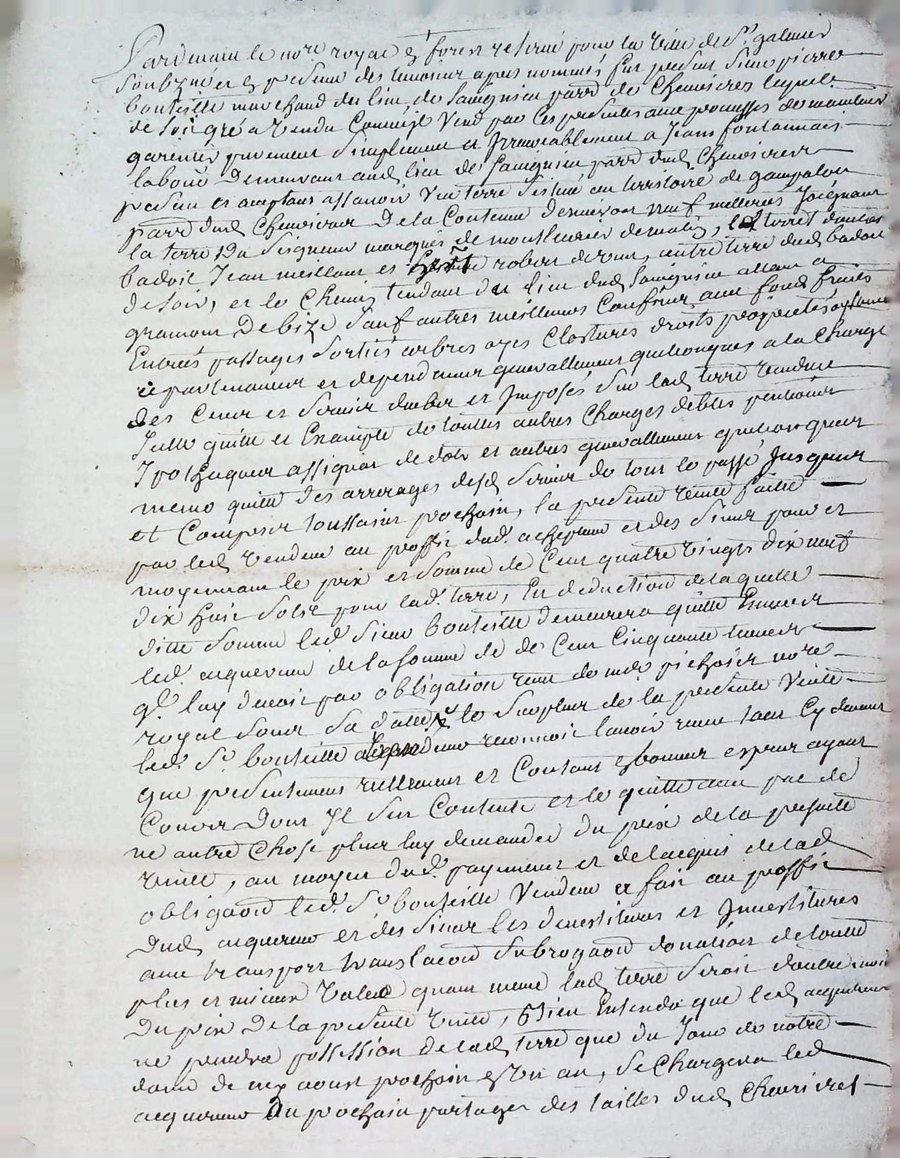 Pardevant le nore royal en forest reservé pour la ville de St galmier
soubzné et en presence des temoins apres nommés fut present sieur pierre
bouteille marchand du lieu de Savignieu parr de Chevrieres lequel
de son gré a vendu Comme il vend par ces presentes aux promesses de maintenir
garentir purement simplement et Irrevocablement a Jean fontannais
labour demeurant aud lieu de Savignieu parr dud Chevrieres
present et acceptant assavoir Une terre situé au territoire de
parr dud Chevrieres De la Contenue denviron neuf metterées Joignant
la terre Du Seigneur marquis de de matin, la terre
badoit Jean meillant et robert de vent, autre terre dud badoit
de soir, et le Chemin tendant du lieu dud Savignieu allant a
gramont De bize Sauf autres meilleurs Confins aux fond fruits
Entrées passages sorties arbres ayes Clostures droits proprietés
apartenances et dependances generallement quelconques a la Charge
des Cens et servis dubes et Imposés sur lad terre vendue
Jcelle quitte et Exampte de touttes autres Charges debtes pentions
Ipotheques assignat de dots et autres generallement quelconques
meme quitte des arrerages desd servis de tout le passé Jusques
et Compris toussaint prochain, la presente vente faitte
par led vendeur au proffit dud acheteur et des siens pour et
moyennant le prix et somme de Cent quatre vingts dix neuf
dix huit sols pour lad terre, En deduction de laquelle
ditte somme led sieur bouteille demeurera quitte Envers
led acquereur de la somme de de Cent Cinquante livres
ql luy devoit par obligation receue de me pichoir nore
royal sous sa datte, le surplus de la presente vente
led sr bouteille vendeur reconnoit lavoir receu tant Cy devant
que presentement reellement et Contant en bonnes especes ayant
Cours Dont Jl sen Contente et le quitte avec pac de
ne autre Chose plus luy demander du prix de la presente
vente, au moyen dud payement et de lacquis de lad
obligaon led sr bouteille Vendeur a fait au proffit
dud acquereur et des siens les devestitures et Jnvestitures
avec transport translaon subrogaon donation de toutte
plus et mieux value quand meme lad terre seroit doutre moité
Du prix de la presente vente, Bien Entendu que led acquereur
ne prendra possession de lad terre que du Jour de notre
dame de my aoust prochain en Un an, se Chargera led
acquereur Au prochain partages des tailles dud Chevrieres